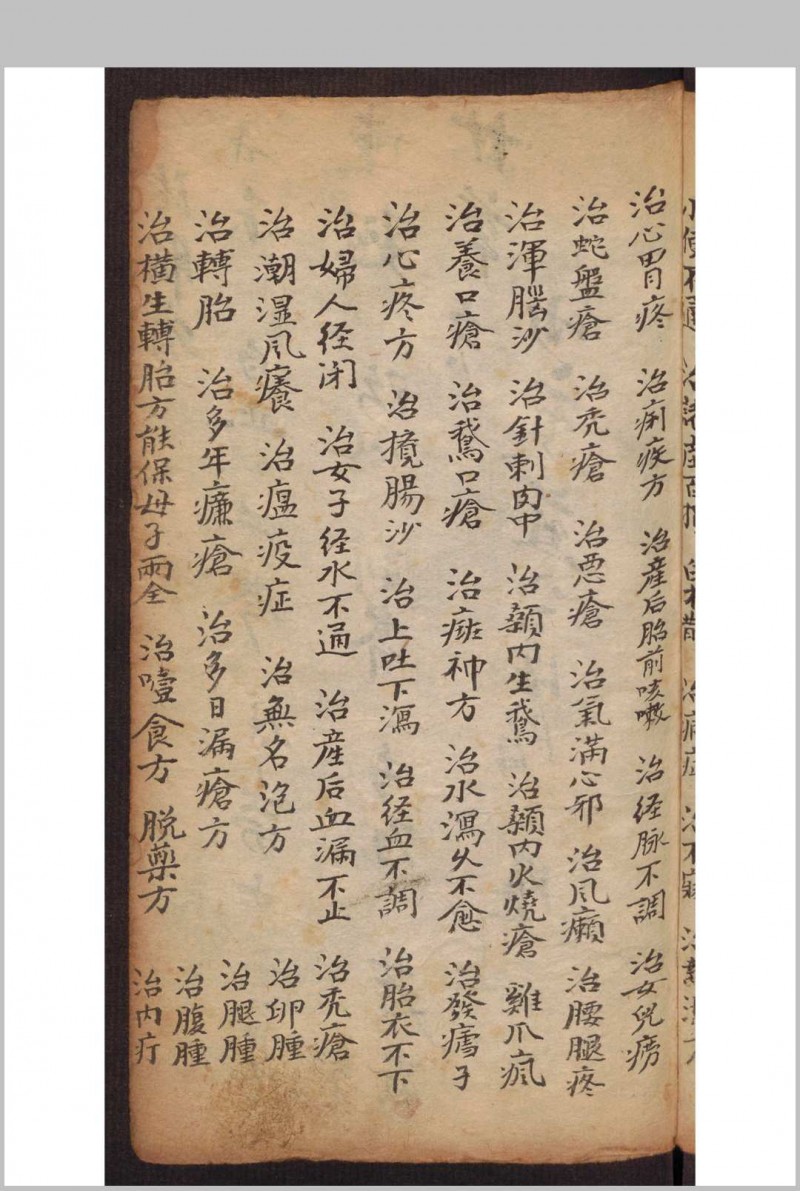 治心胃疼 治痢疾方 治産后胎前咳嗽 治经脉不調 治女兒癆
治蛇盤瘡 治禿瘡 治悪瘡 治氣滿心邪 治风癩 治腰腿疼
治渾腦沙 治針刺肉中 治顙内生鵝 治顙内火燒瘡 雞爪瘋
治養口瘡 治鵝口瘡 治痣神方 治水瀉久不愈 治發瘧子
治心疼方 治攪腸沙 治上吐下瀉 治経血不調 治胎衣不下
治婦人径闭 治女子径水不通 治産后血漏不止 治禿瘡
治潮湿风癢 治瘟疫症 治無名泡方 治卵腫
治轉胎 治多年臁瘡 治多日漏瘡方 治腿腫
治横生轉胎方能保母子兩全 治噎食方 脱藥方 治腹腫
治内疔